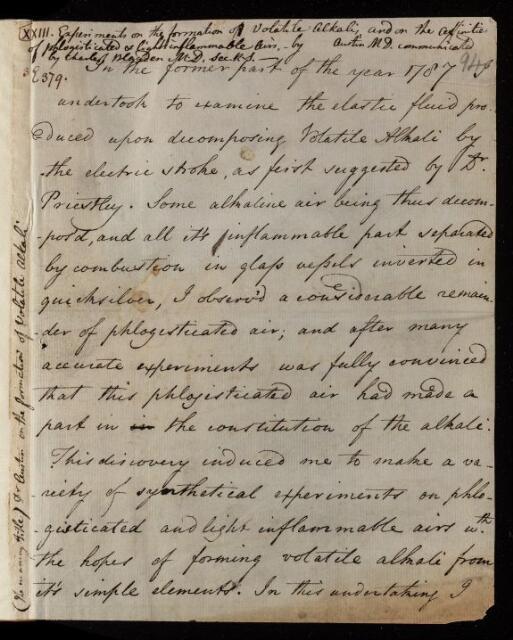 XXIII. Experiments on the formation of Volatile Alkali, and on the affinities
of phlogisticated & light inflammable airs, - by Austin M.D. communicated
by Charles Blagden M.D. Sec. R.S.
E 379.
In the former part of the year 1787
undertook to examine the elastic fluid pro-
duced upon decomposing Volatile Alkali by
the electric stroke, as first suggested by Dr.
Priestley. Some alkaline air being thus decom-
-pos'd, and all it's inflammable part separated
by combustion in glass vessels inverted in
quicksilver, I observ'd a considerable remain-
-der of phlogisticated air; and after many
accurate experiments was fully convinced
that this phlogisticated air had made a
part in in the constitution of the alkali.
This discovery induced me to make a va-
-riety of synthetical experiments on phlo-
-gisticated and light inflammable airs wth.
the hopes of forming volatile alkali from
it's simple elements. In this undertaking I
(Running title) Dr Austin on the formation of Volatile Alkali